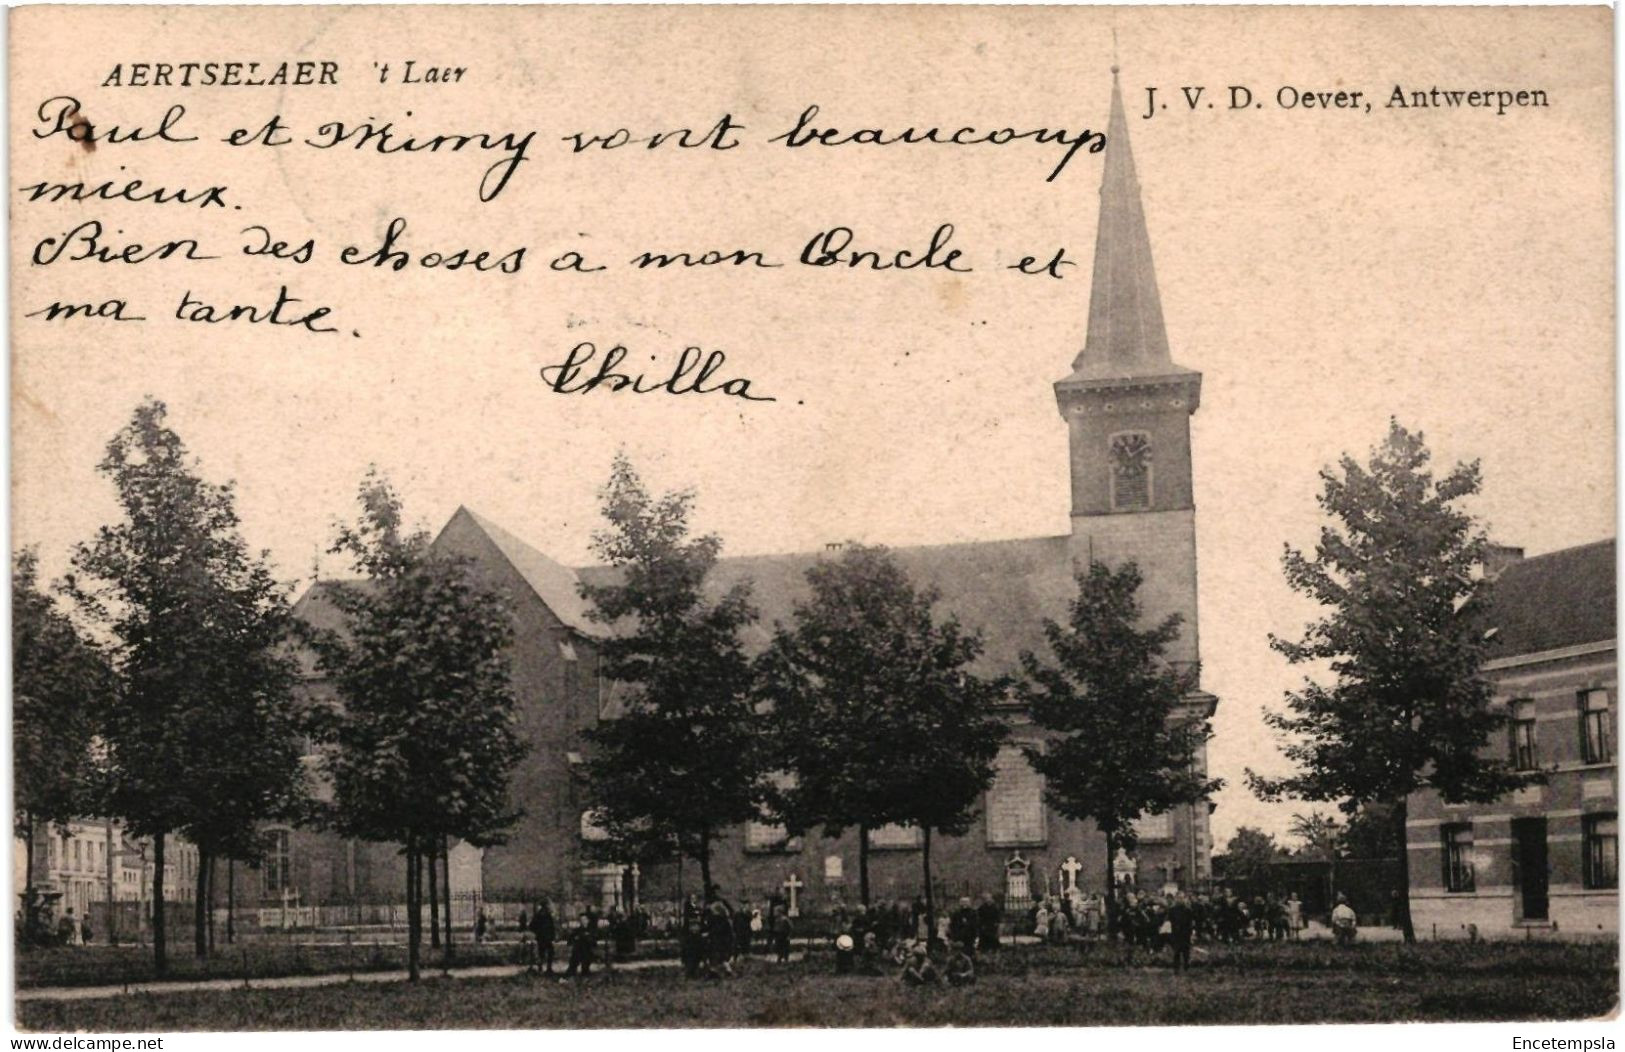 AERTSELAER 't Laer
J. V. D. Oever, Antwerpen
Paul et Mimy vont beaucoup
mieux.
Bien des choses à mon Oncle et
ma tante.
Thilla.
www.delcampe.net
Encetempsla